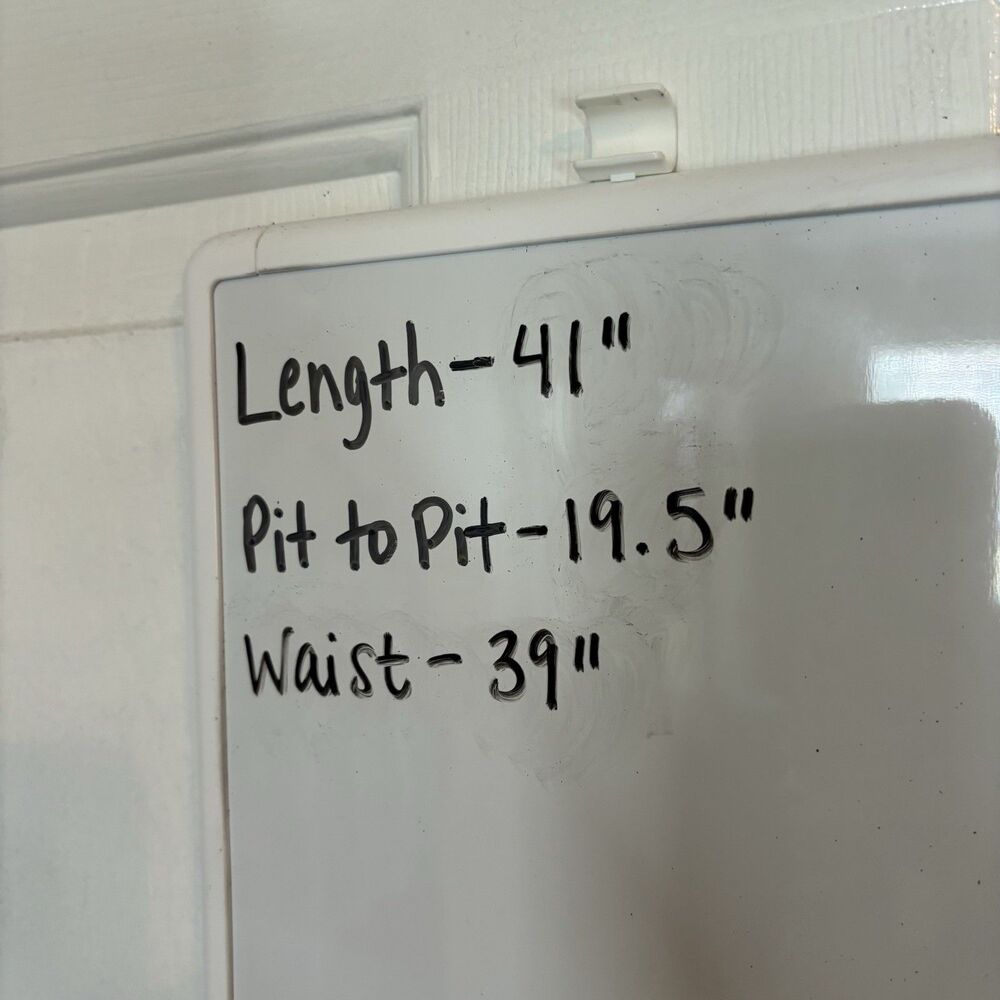 Length - 41"
Pit to Pit - 19.5"
Waist - 39"